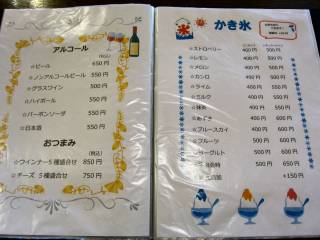 アルコール
(税込)
☆ビール 650円
☆ノンアルコールビール 550円
☆グラスワイン 500円
☆ハイボール 550円
☆バーボンソーダ 550円
☆日本酒 550円
おつまみ
(税込)
☆ウインナー5種盛合せ 850円
☆チーズ 5種盛合せ 750円
かき氷
☆ストロベリー 400円 500円 550円
☆レモン 400円 500円 550円
☆メロン 400円 500円 550円
☆カンロ 400円 500円 550円
☆ライム 400円 500円 550円
☆ミルク 400円 500円 550円
☆抹茶 400円 500円 550円
☆あずき 400円 500円 550円
☆ブルースカイ 400円 500円 550円
☆フルーツ 500円 600円 650円
ヨーグルト 500円 600円 650円
500円 600円 650円
+150円